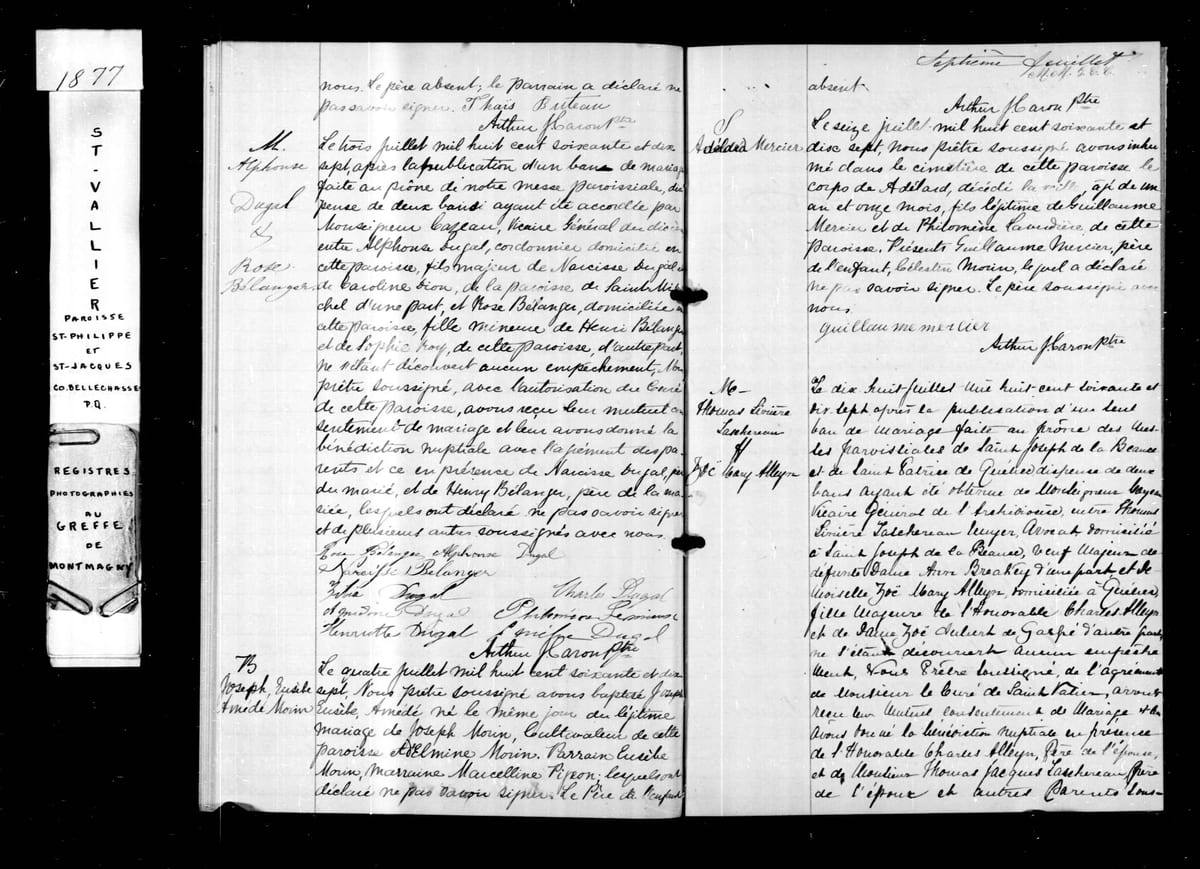 1877
ST-VALLIER
PAROISSE
ST-PHILIPPE
ET
ST-JACQUES
CO. BELLECHASSE
P.Q.
REGISTRES
PHOTOGRAPHIÉS
AU
GREFFE
DE
MONTMAGNY
nous. Le père absent; le parrain a déclaré ne
pas savoir signer. Thaïs Buteau
Arthur J Caron Ptre
M.
Alphonse
Dugal
&
Rose
Bélanger
Le trois juillet mil huit cent soixante et dix
sept, après la publication d'un ban de mariage
faite au prône de notre messe paroissiale, dis
pense de deux bans ayant été accordée par
Monseigneur Cazeau, Vicaire Général du diocèse
entre Alphonse Dugal, cordonnier domicilié en
cette paroisse, fils majeur de Narcisse Dugal
de Caroline Dion, de la paroisse de Saint Mi
chel d'une part, et Rose Bélanger, domiciliée en
cette paroisse, fille mineure de Henri Bélanger
et de Sophie Roy, de cette paroisse, d'autre part,
ne s'étant découvert aucun empêchement, Nous
prêtre soussigné, avec l'autorisation du Curé
de cette paroisse, avons reçu leur mutuel con
sentement de mariage et leur avons donné la
bénédiction nuptiale avec l'agrément des pa
rents et ce en présence de Narcisse Dugal, père
du marié, et de Henry Bélanger, père de la ma
riée, lesquels ont déclaré ne pas savoir signer
et de plusieurs autres soussignés avec nous.
Rose Bélanger Alphonse Dugal
Narcisse Bélanger
Zélia Dugal Charles Dugal
Dugal Philomène
Henriette Dugal Dugal
Arthur J Caron Ptre
B
Joseph, Eusèbe
Amédé Morin
Le quatre juillet mil huit cent soixante et dix
sept, Nous prêtre soussigné avons baptisé Joseph
Eusèbe, Amédé né le même jour du légitime
mariage de Joseph Morin, Cultivateur de cette
paroisse & Delmine Morin. Parrain Eusèbe
Morin, Marraine Marcelline Pigeon; lesquels ont
déclaré ne pas savoir signer. Le Père de l'enfant
Septième feuillet
absent.
Arthur J Caron Ptre
S
Adélard Mercier
Le seize juillet mil huit cent soixante et
dix sept, Nous prêtre soussigné avons inhu
mé dans le cimetière de cette paroisse le
corps de Adélard, décédé la veille, agé de un
an et onze mois, fils légitime de Guillaume
Mercier et de Philomène Laverdière, de cette
paroisse. Présents Guillaume Mercier, père
de l'enfant, Célestin Morin, lequel a déclaré
ne pas savoir signer. Le père soussigné avec
nous.
Guillaume mercier
Arthur J Caron Ptre
M
Thomas Linière
Taschereau
&
Zoë Mary Alleyn
Le dix huit Juillet mil huit cent soixante et
dix sept après la publication d'un seul
ban de Mariage faite au prône des Mes
ses paroissiales de Saint Joseph de la Beauce
et de Saint Patrice de Québec dispense de deux
bans ayant été obtenue de Monseigneur
Vicaire Général de l'Archidiocèse, entre Thomas
Linière Taschereau Ecuyer, Avocat domicilié
à Saint Joseph de la Beauce, Veuf Majeur de
défunte Dame Anne Breakey d'une part et De
Moiselle Zoë Mary Alleyn, domiciliée à Québec
fille Majeure de l'Honorable Charles Alleyn
et de Dame Zoë Aubert de Gaspé d'autre part,
ne s'étant découvert aucun empêche
ment, Nous Prêtre soussigné, de l'agrément
de Monsieur le Curé de Saint Valier, avons
reçu leur Mutuel consentement de Mariage et leur
avons donné la bénédiction nuptiale en présence
de l'Honorable Charles Alleyn, Père de l'épouse,
et de Monsieur Thomas Jacques Taschereau frère
de l'époux et autres Parents sous-